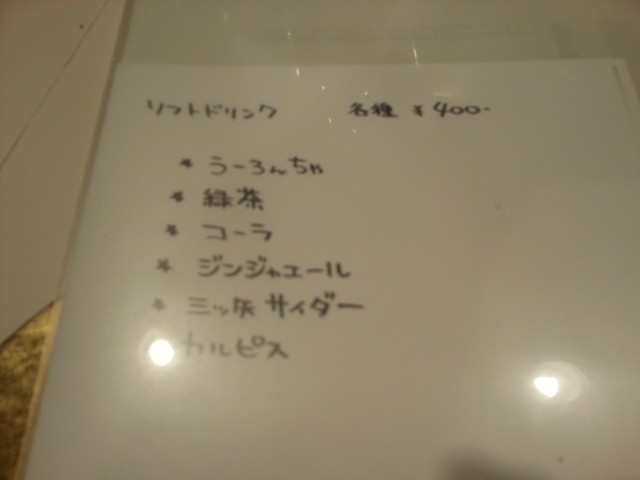 ソフトドリンク 各種 ¥400-
* うーろんちゃ
* 緑茶
* コーラ
* ジンジャエール
* 三ッ矢サイダー
カルピス